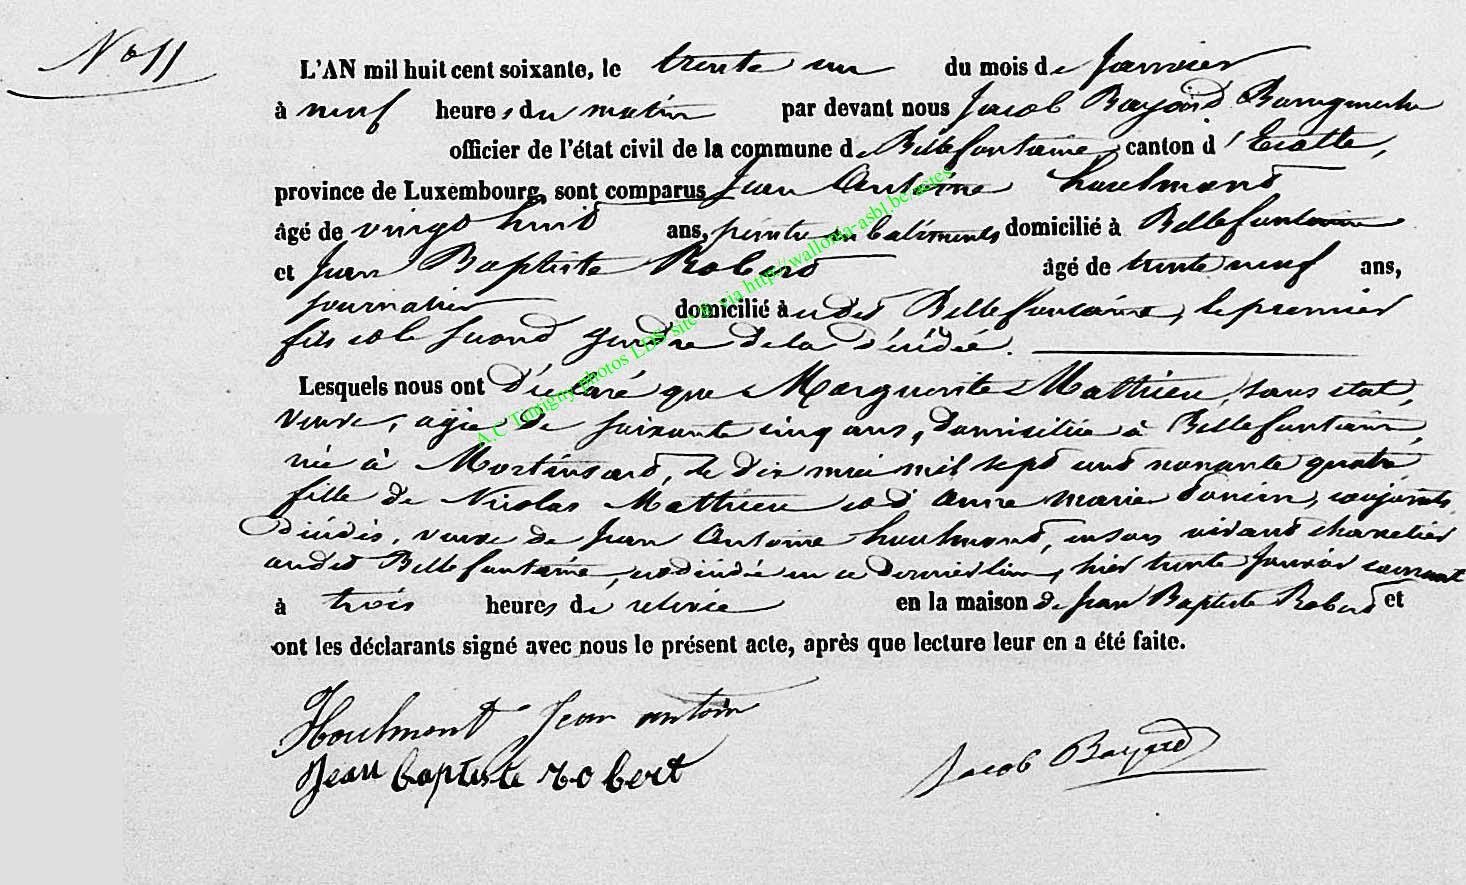 No 11
L'AN mil huit cent soixante, le trente un du mois de Janvier
à neuf heures du matin par devant nous Jacob Bayard Bourgmestre
officier de l'état civil de la commune de Bellefontaine, canton d'Etalle,
province de Luxembourg, sont comparus Jean Antoine houlmont
âgé de vingt huit ans, peintre en batiments domicilié à Bellefontaine
et Jean Baptiste Robert âgé de trente neuf ans,
journalier domicilié à udit Bellefontaine, le premier
fils et le second gendre de la décédée.
Lesquels nous ont déclaré que Marguerite Mathieu, sans état,
veuve, agée de soixante cinq ans, domiciliée à Bellefontaine,
née à Mortinsart, le dix mai mil sept cent nonante quatre
fille de Nicolas Mathieu et d'anne marie conjoints
décédés, veuve de Jean Antoine houlmont, en son vivant charretier
audit Bellefontaine, est décédée en ce dernier lieu, hier trente Janvier courant
à trois heures de relevée en la maison de Jean Baptiste Robert et
ont les déclarants signé avec nous le présent acte, après que lecture leur en a été faite.
Houlmont Jean antoin
Jean baptiste robert
Jacob Bayard
A.C Tintigny photos LDS site & via http://wallonia-asbl.be/actes